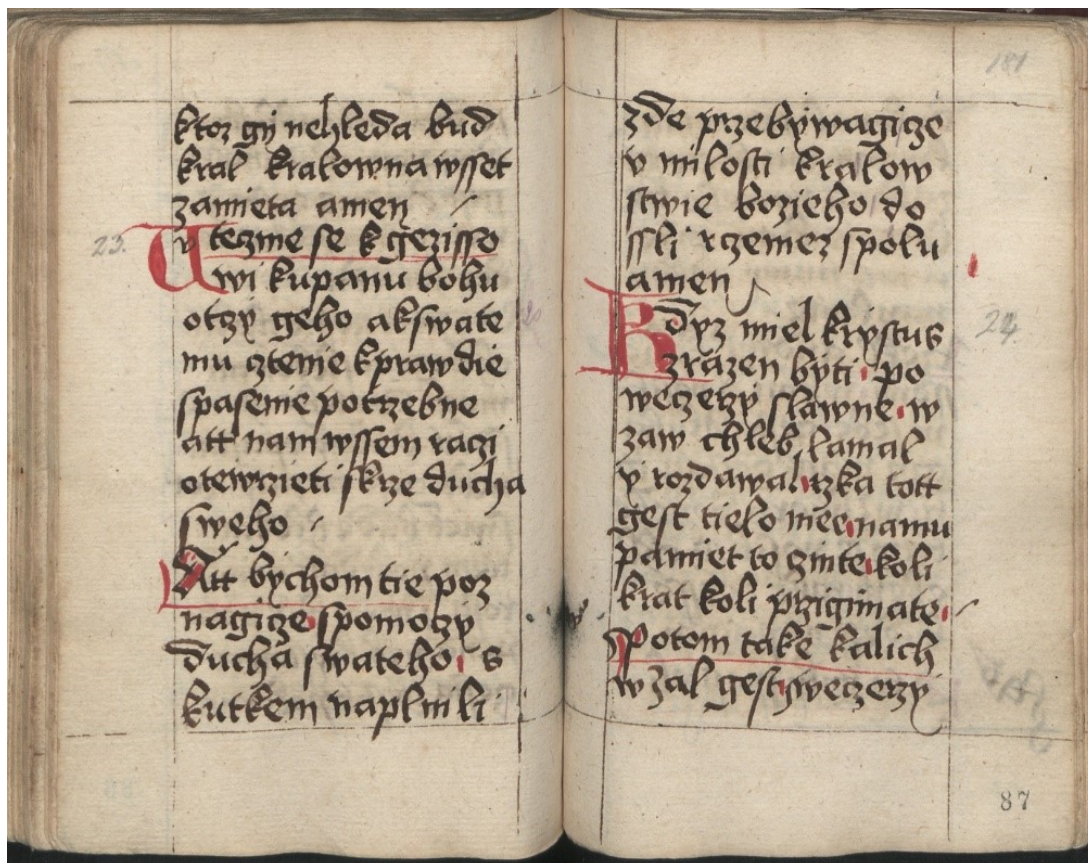 ktoz gij nehleda bud
kral kralowna wsset
zamieta amen
23.
Uteczme se k gezisso
wi ku panu bohu
otczy geho a k swate
mu cztenie k prawdie
spasenie potrzebne
att nam wssem raczi
otewrzieti skrze ducha
sweho
Att bychom tie poz
nagicze spomoczy
ducha swateho s
kutkem naplnili
181
zde przebywagicze
v milosti kralow
stwie bozieho do
ssli rczemez spolu
amen
24.
Kdyz miel krystus
zrazen byti po
weczerzy slawne w
zaw chleb lamal
y rozdawal rzka tott
gest tielo mee na mu
pamiet to czinte koli
krat koli przigimate
Potom take kalich
wzal gest s weczerzy
87